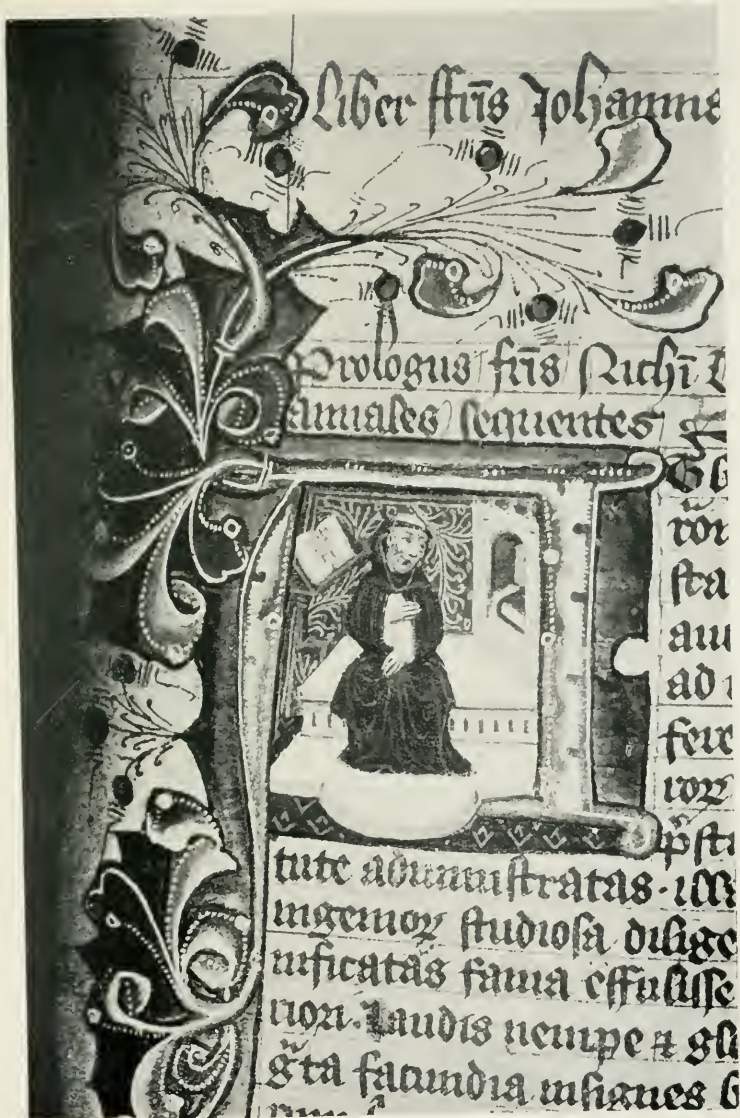 Liber ffr̄is Johannis
Prologus fr̄is Nichī
annales sequentes
ror
sta
aui
ad
fere
roꝝ
p̄sta
tute administratas · ill
ingenioꝝ studiosa dilige
nificatas fama effulsisse
riori. Laudis nempe ⁊ gl
g̃ta facundia insignes